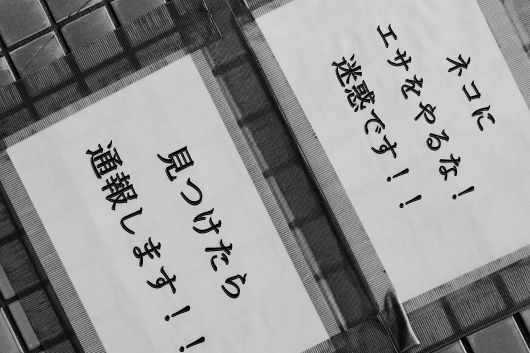 ネコに
エサをやるな！
迷惑です！！
見つけたら
通報します！！